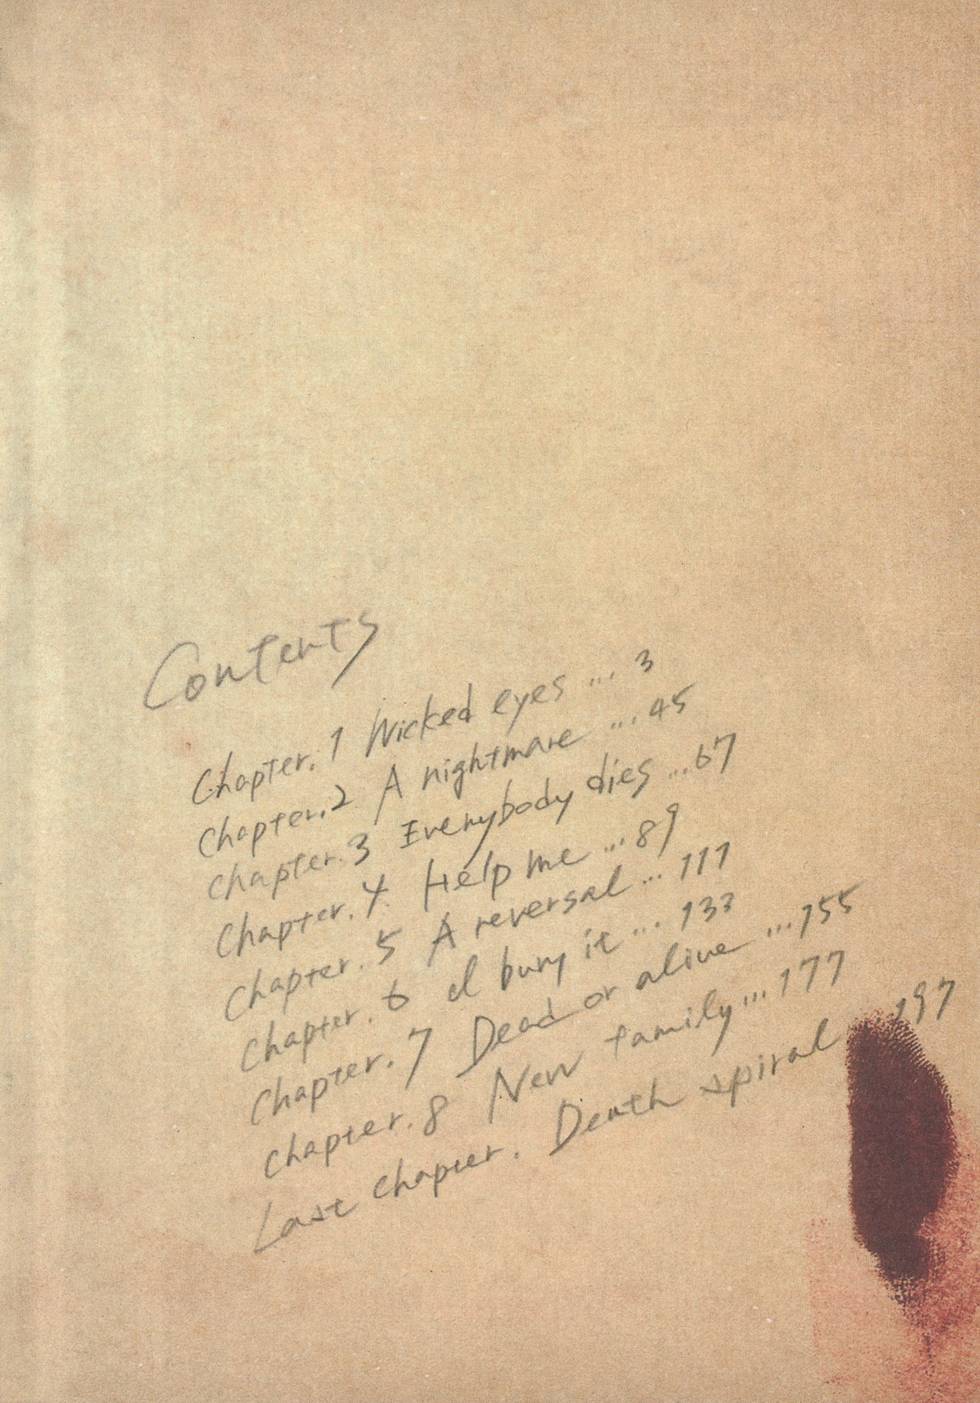 Contents
Chapter.1 Wicked eyes ... 3
Chapter.2 A nightmare ... 45
Chapter.3 Everybody dies ... 67
Chapter.4. Help me ... 89
Chapter.5 A reversal ... 111
Chapter.6 I bury it ... 133
Chapter.7 Dead or alive ... 155
Chapter.8 New family ... 177
Last chapter. Death spiral ... 197